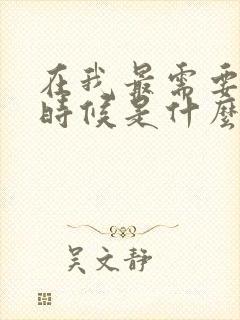 在我最需要
時候是什麼
吴文静